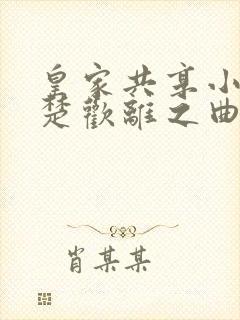 皇家共享小
楚歡離之曲
肖某某